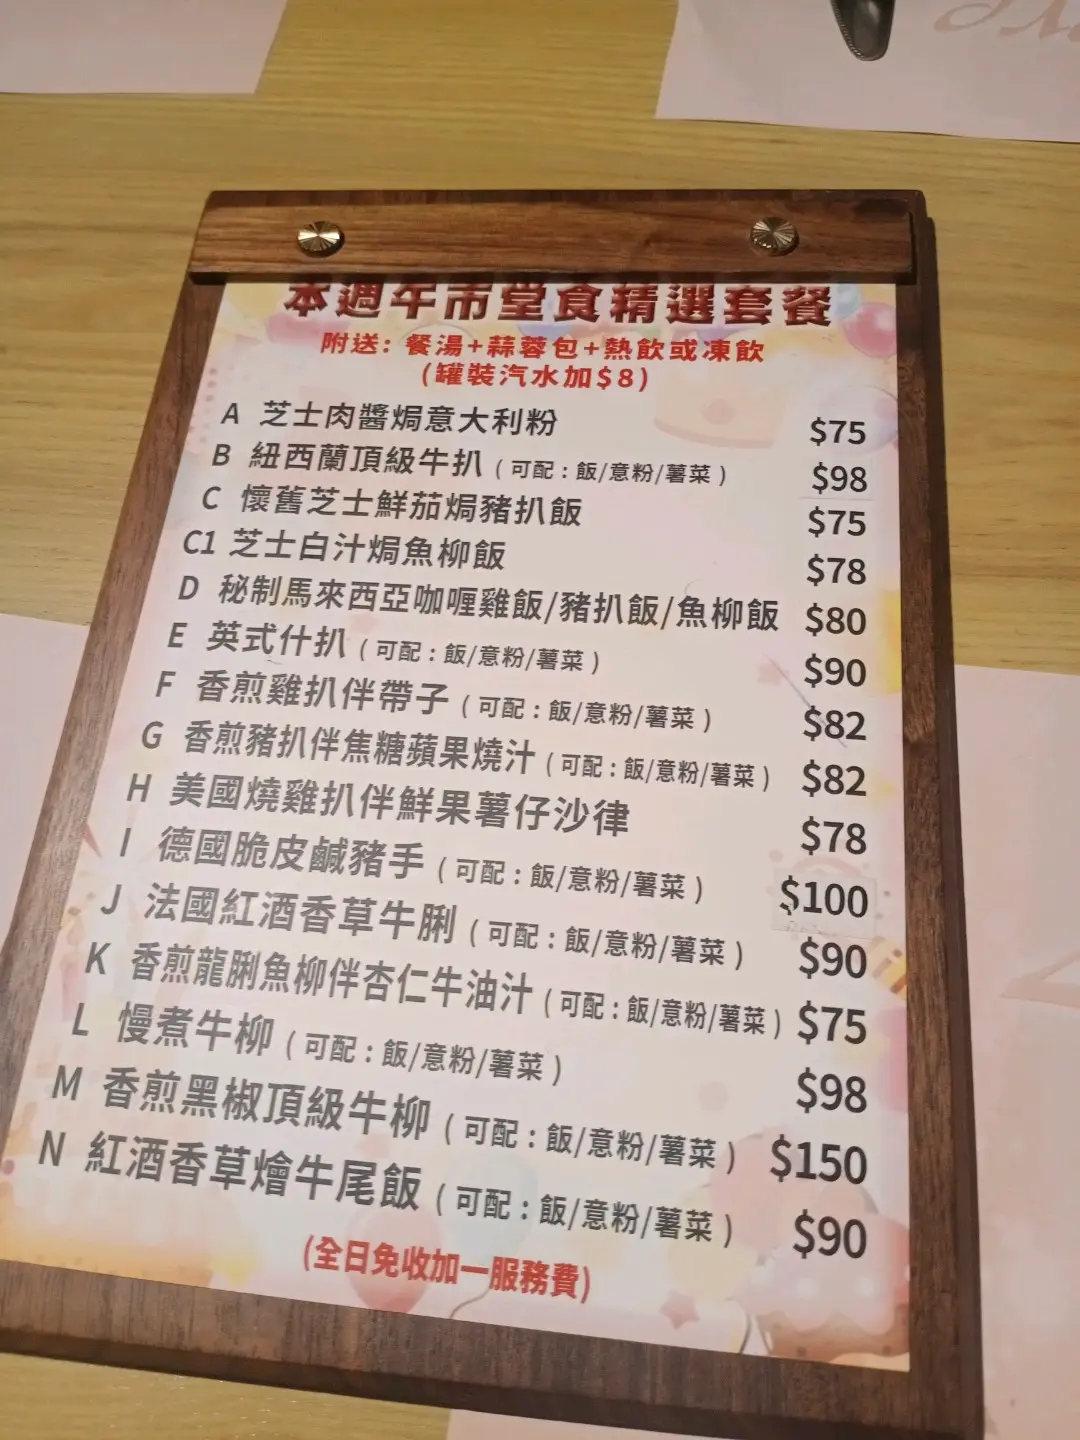 本週午市堂食精選套餐
附送: 餐湯+蒜蓉包+熱飲或凍飲
(罐裝汽水加$8)
A 芝士肉醬焗意大利粉 $75
B 紐西蘭頂級牛扒 (可配:飯/意粉/薯菜) $98
C 懷舊芝士鮮茄焗豬扒飯 $75
C1 芝士白汁焗魚柳飯 $78
D 秘制馬來西亞咖喱雞飯/豬扒飯/魚柳飯 $80
E 英式什扒 (可配:飯/意粉/薯菜) $90
F 香煎雞扒伴帶子 (可配:飯/意粉/薯菜) $82
G 香煎豬扒伴焦糖蘋果燒汁 (可配:飯/意粉/薯菜) $82
H 美國燒雞扒伴鮮果薯仔沙律 $78
I 德國脆皮鹹豬手 (可配:飯/意粉/薯菜) $100
J 法國紅酒香草牛脷 (可配:飯/意粉/薯菜) $90
K 香煎龍脷魚柳伴杏仁牛油汁 (可配:飯/意粉/薯菜) $75
L 慢煮牛柳 (可配:飯/意粉/薯菜) $98
M 香煎黑椒頂級牛柳 (可配:飯/意粉/薯菜) $150
N 紅酒香草燴牛尾飯 (可配:飯/意粉/薯菜) $90
(全日免收加一服務費)